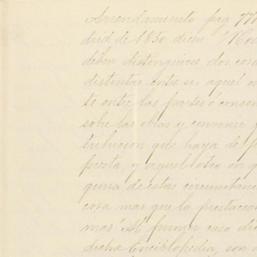 Arrendamiento pag 777
drid de 1850 dicen "No
deben distinguirse dos cos
distintas entre si, aquel en
te entre las partes ó consen
sobre las obras y convenio
tribucion que haya de p
puesta, y aquel otro en q
guna de estas circunstanc
cosa mas que la prestacion
mas" Al primer caso di
dicha Enciclopedia, son a